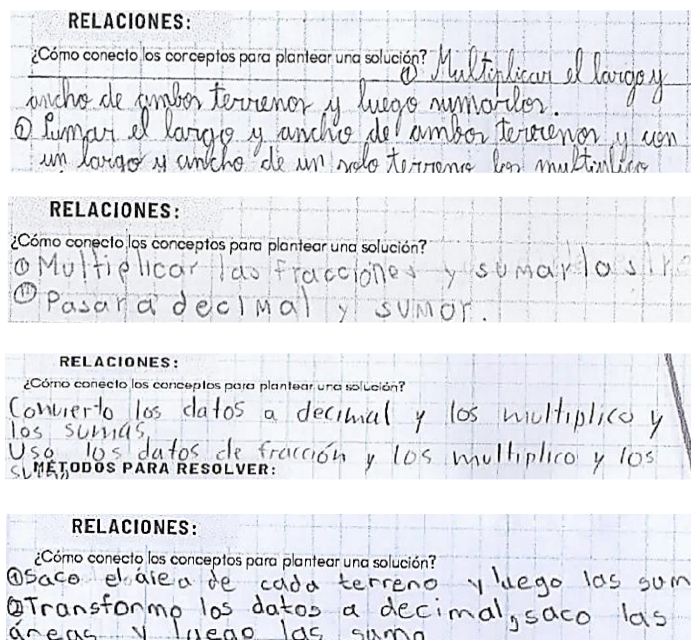 RELACIONES:
¿Cómo conecto los conceptos para plantear una solución? ① Multiplicar el largo y
ancho de ambos terrenos y luego sumarlos.
② Sumar el largo y ancho de ambos terrenos y con
un largo y ancho de un solo terreno los multiplico
RELACIONES:
¿Cómo conecto los conceptos para plantear una solución?
① Multiplicar las fracciones y sumarlas
② Pasar a decimal y sumar.
RELACIONES:
¿Cómo conecto los conceptos para plantear una solución?
Convierto los datos a decimal y los multiplico y
los sumas
Uso los datos de fracción y los multiplico y los
sumo
MÉTODOS PARA RESOLVER:
RELACIONES:
¿Cómo conecto los conceptos para plantear una solución?
① Saco el area de cada terreno y luego las sum
② Transformo los datos a decimal, saco las
áreas y luego las sumo